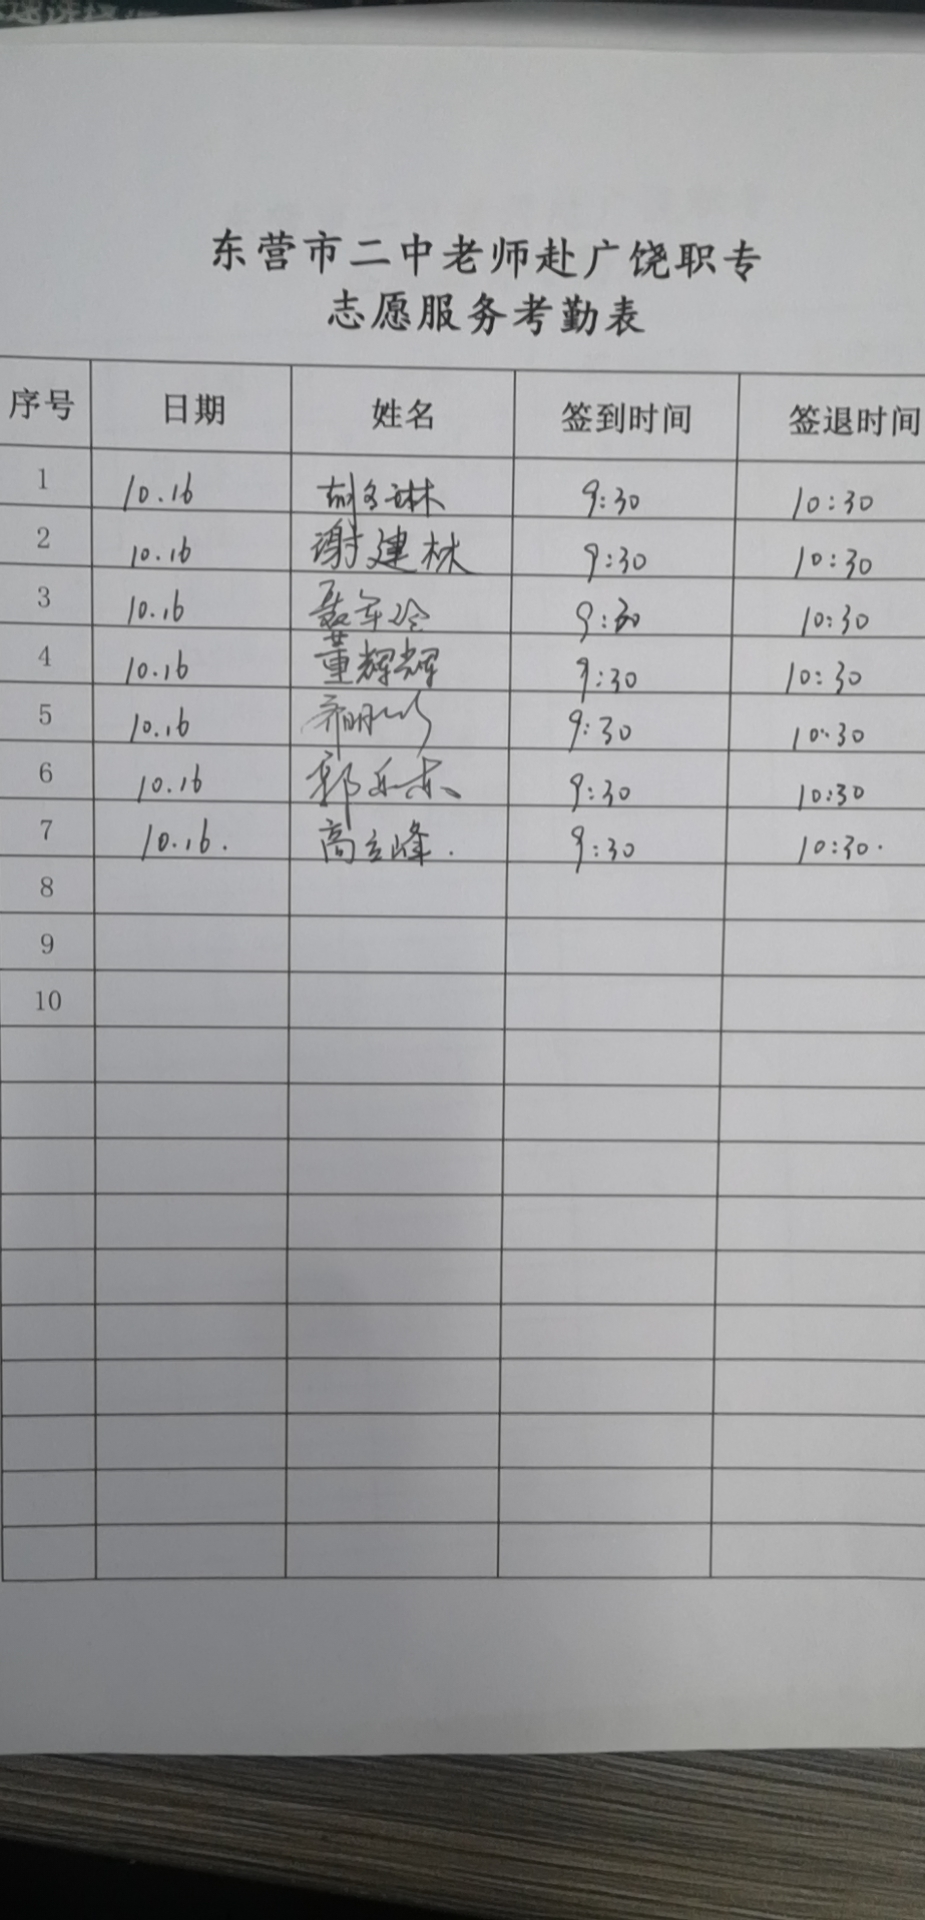 东营市二中老师赴广饶职专
志愿服务考勤表
序号 日期 姓名 签到时间 签退时间
1 10.16 9:30 10:30
2 10.16 谢建林 9:30 10:30
3 10.16 9:30 10:30
4 10.16 董辉辉 9:30 10:30
5 10.16 9:30 10:30
6 10.16 郭 9:30 10:30
7 10.16. 高立峰. 9:30 10:30.
8
9
10